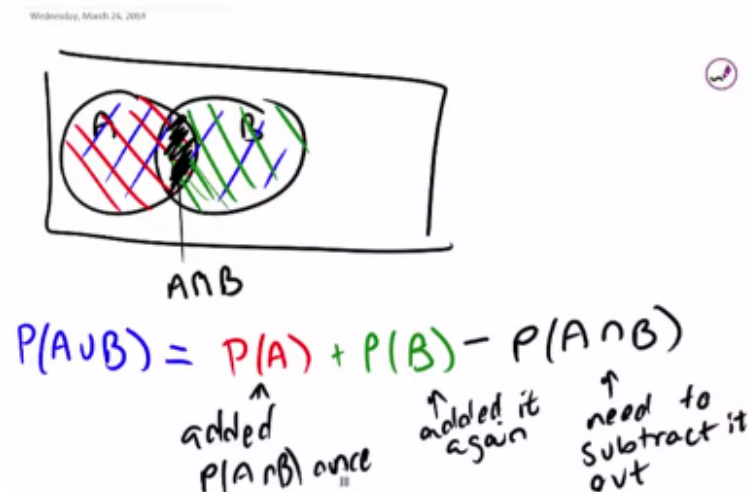 Wednesday, March 26, 2014
A B
A∩B
P(A∪B) = P(A) + P(B) - P(A∩B)
added
P(A∩B) once
added it
again
need to
subtract it
out